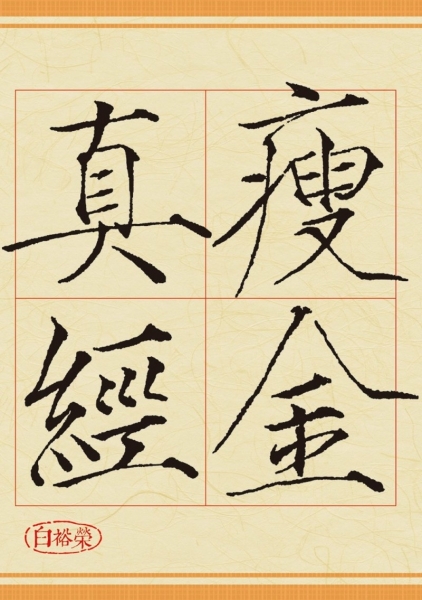 瘦金
真經
白裕榮